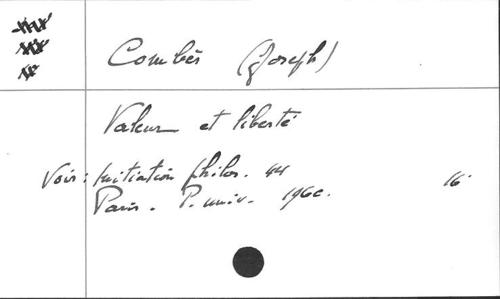 Combès (Joseph)
Valeur et liberté
Voir: Initiation philos. 44
Paris. P. univ. 1960. 16